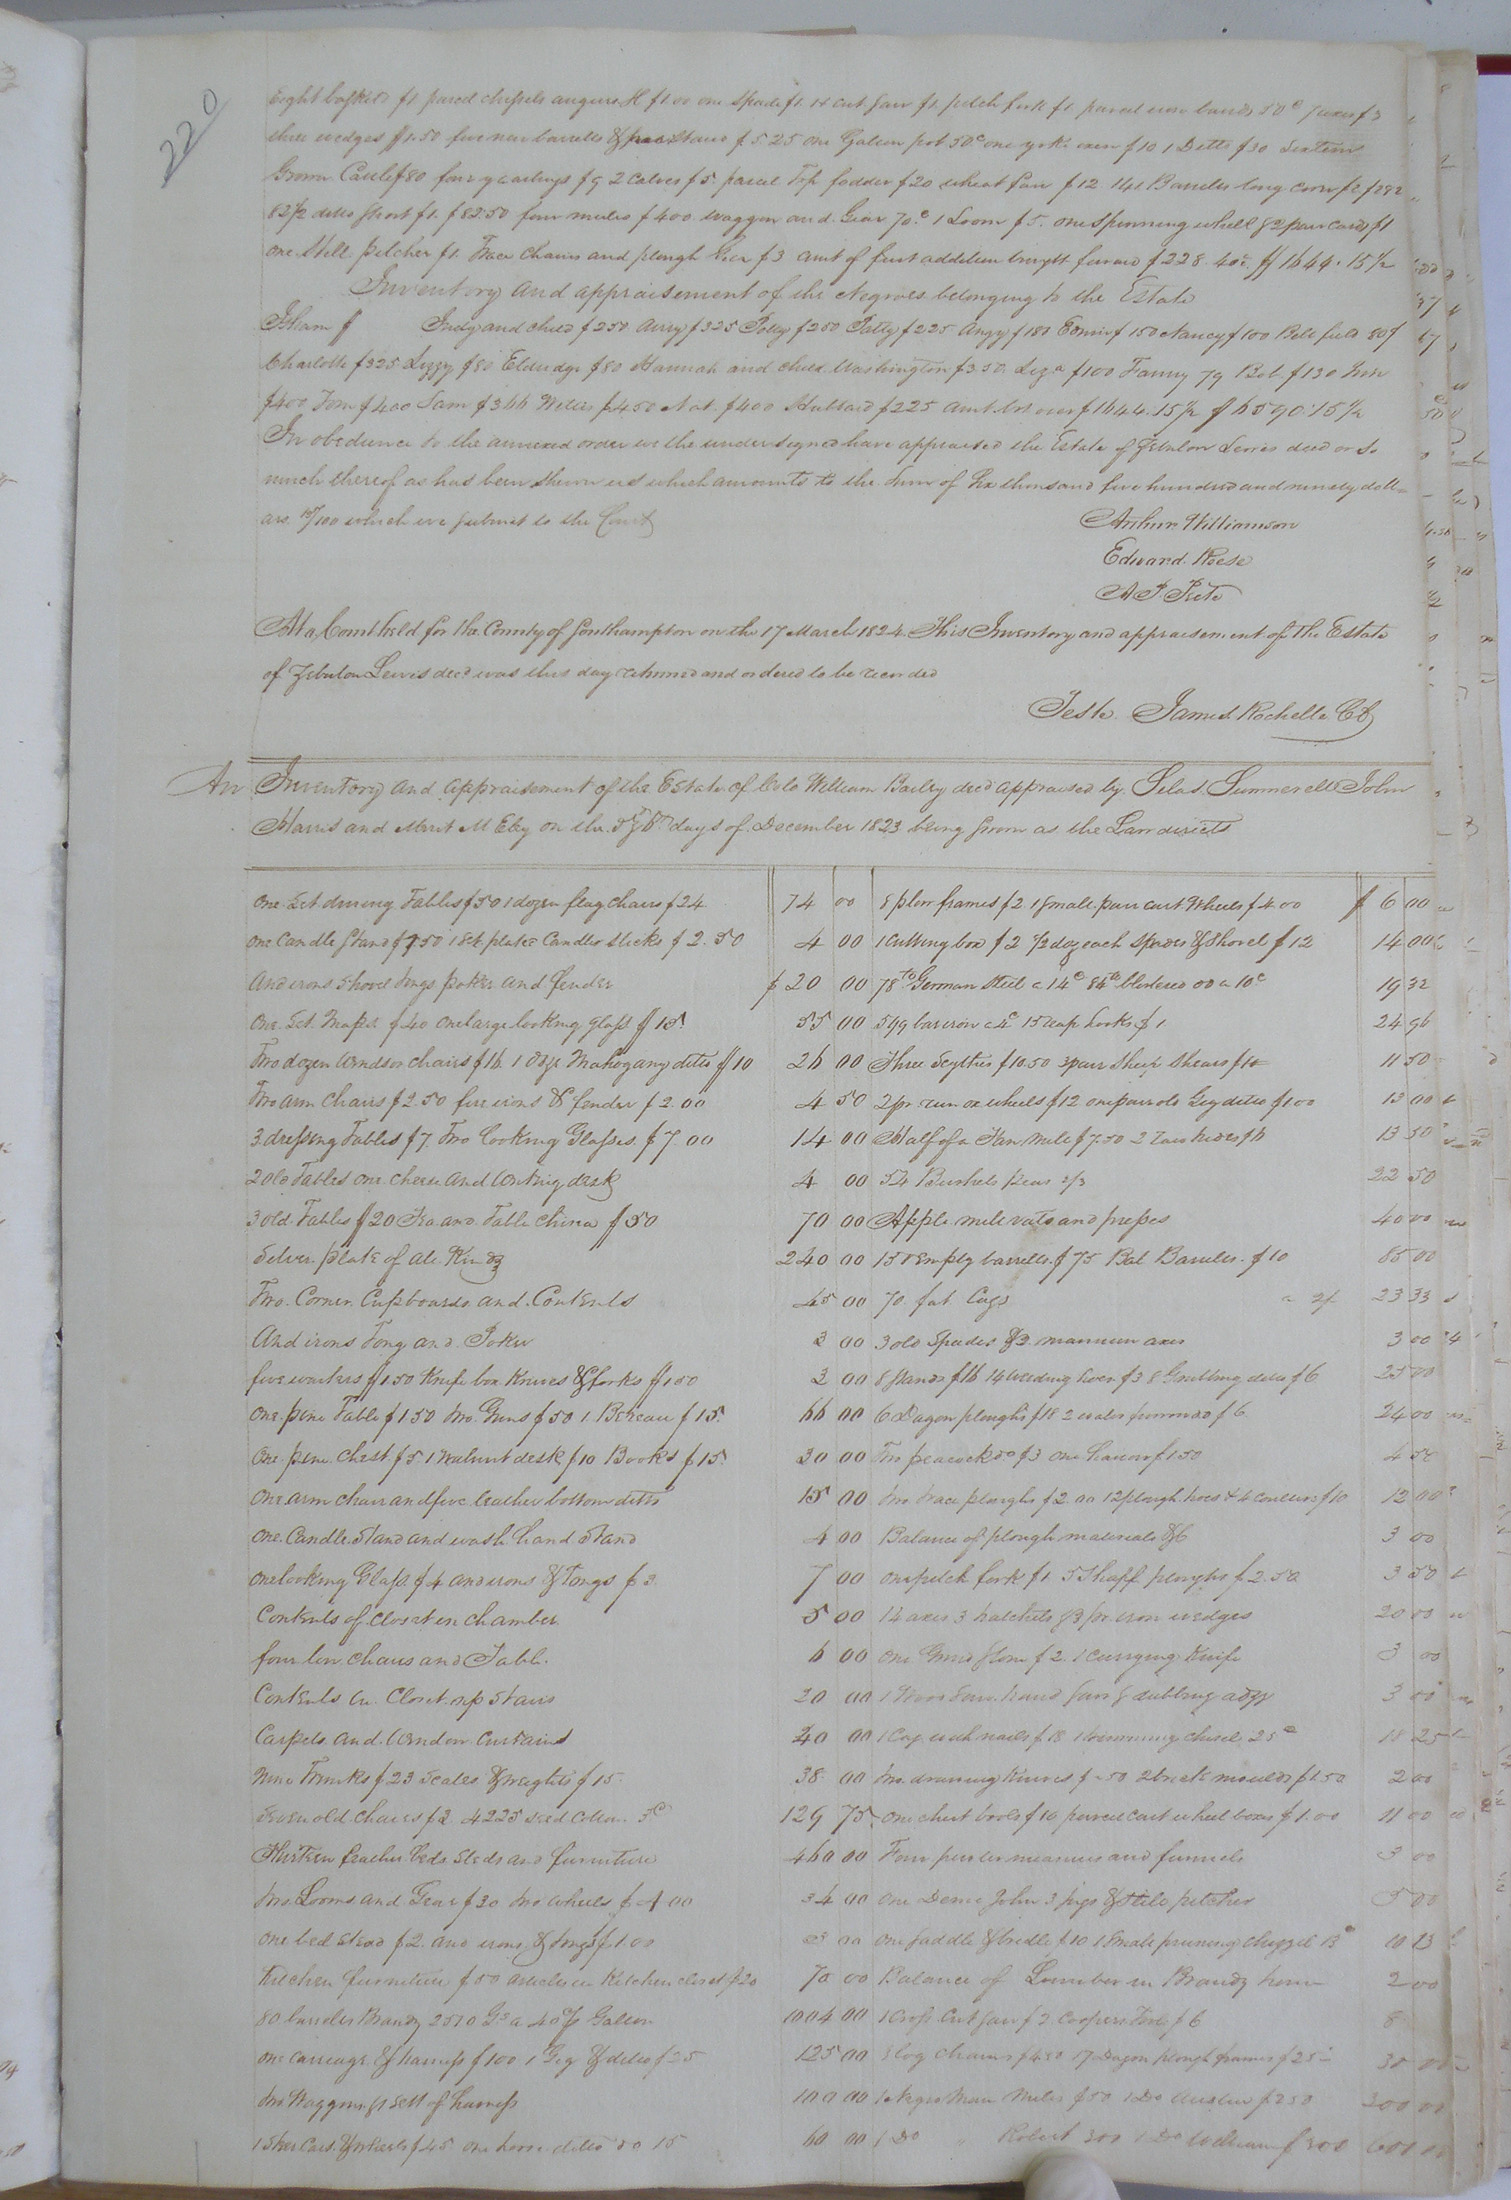 220
Eight baskets $1 parcel chissels augurs &c $1.00 one Spade $1. 1 x cut Saw $1. pitch fork $1. parcel iron bands 50c axes $3
three wedges $1.50 five new barrells & Stand $5.25 one Gallon pot 50c one yoke oxen $10 1 Ditto $30 Sixteen
Grown Cattle $80 four yearlings $9 2 Calves $5. parcel Top fodder $20 wheat fan $12. 141 Barrels long corn $2 $282
82½ ditto Short $1. $82.50 four mules $400 waggon and Gear 70.c 1 Loom $5. one Spinning wheel & 2 pair cards $1
one Still pitcher $1. Trace chains and plough Gear $3 amt of first addition brought forward $228.40c $1644.15½
Inventory and appraisement of the Negroes belonging to the Estate
Isham $ Judy and child $250 $325 Polly $250 Patty $225 Angy $180 Edwin $150 Nancy $100 Belt field 80$
Charlotte $325 Lizzy $80 Eldridge $80 Hannah and child Washington $350. Liza $100 Fanny 79 Bob $130
$400 Tom $400 Sam $366 Willis $450 Nat $400 Hubbard $225 amt bt. over $1644.15½ $6590.15½
In obedience to the annexed order we the undersigned have appraised the Estate of Zebulon Lewis decd or so
much thereof as has been shewn us which amounts to the Sum of Six thousand five hundred and ninety doll=
ars 15/100 which we Submit to the Court
Arthur Williamson
Edward Reese
At a Court held for the County of Southampton on the 17 March 1824. This Inventory and appraisement of the Estate
of Zebulon Lewis decd was this day returned and ordered to be recorded
Teste James Rochelle CC
An Inventory and appraisement of the Estate of Colo William Bailey decd appraised by Silas Summerell John
Harris and Merit M Eley on the 5 & 6th days of December 1823 being Sworn as the Law directs
One Set dining Tables $50 1 dozen flag chairs $24 74 00 8 plow frames $2. 1 Small pair cart Wheels $4.00 $6 00
One Candle Stand $1.50 1 Set plated Candlesticks $2.50 4 00 1 Cutting box $2 ½ doz each Spades & Shovel $12 14 00
Andirons Shovel tongs poker and fender $20 00 78 lb German Steel a 14c 84 lb blistered do a 10c 19 32
One Set Maps $40 one large looking glass $15. 55 00 599 bar iron a 4c 15 reap hooks $1 24 96
Two dozen Windsor chairs $16. 1 doz Mahogany ditto $10 26 00 Three Scythes $10.50 3 pair Sheep Shears $1 11 50
Two arm chairs $2.50 fire irons & fender $2.00 4 50 2 pr. run ox wheels $12 one pair old Gig ditto $1.00 13 00
3 dressing Tables $7. Two Looking Glasses $7.00 14 00 Half of a Fan Mill $7.50 2 Raw hides $6 13 50
2 old Tables one cheese and writing desk 4 00 54 Bushels peas 2/3 22 50
3 old Tables $20 Tea and Table China $50 70 00 Apple mill vats and presses 40 00
Silver plate of all Kinds 240 00 150 empty barrells $75 Bal Barrels $10 85 00
Two Corner Cupboards and Contents 45 00 70 fat Cags a 2/ 23 33
And irons Tong and Poker 2 00 3 old Spades & 3 axes 3 00
five waiters $1.50 Knife box Knives & forks $1.50 3 00 8 Stands $16 14 weeding hoes $3 8 Grubbing ditto $6 25 00
One pine Table $1.50 two Guns $50 1 Bureau $15. 66 00 6 Dagon ploughs $18 2 $6 24 00
One pine Chest $5 1 Walnut desk $10 Books $15. 30 00 Two peacocks $3 one harrow $1.50 4 50
One arm chair and five leather bottom ditto 15 00 two trace ploughs $2.00 12 plough hoes & 4 coulters $10 12 00
One Candle Stand and wash hand Stand 4 00 Balance of plough materials &c 3 00
One looking Glass $4 andirons & Tongs $3 7 00 one pitch fork $1 5 ploughs $2.50 3 50
Contents of closet in chamber 5 00 14 axes 3 hatchets & 3 pr. iron wedges 20 00
four low chairs and Table. 6 00 one Grind Stone $2. 1 Currying Knife 3 00
Contents in Closet up Stairs 20 00 1 Saw hand Saw & dubbing adze 3 00
Carpets and Window Curtains 40 00 1 Cag with nails $18 1 chisel 25c 18 25
Nine Trunks $23 Scales & weights $15 38 00 two drawing Knives $.50 2 brick moulds $1.50 2 00
Seven old chairs $3 4225 Seed Cotton 3c 129 75 one chest tools $10 parcel cart wheel boxes $1.00 11 00
Thirteen feather Beds Steds and furniture 460 00 Four pewter measures and funnels 3 00
two Looms and Gear $30 two wheels $4.00 34 00 one Demi John 3 jugs & Still pitcher 5 00
One bed Stead $2. and irons & tongs $1.00 3 00 one Saddle & bridle $10 1 Small pruning chizzel 13c 10 13
Kitchen furniture $50 articles in Kitchen closet $20 70 00 Balance of Lumber in Brandy house 2 00
80 barrels Brandy 2510 Gs a 40c Gallon 1004 00 1 Cross Cut Saw $2 Coopers tools $6 8
One carriage & harness $100 1 Gig & ditto $25 125 00 chains $4.50 17 Dagon plough frames $25 30 00
two Waggons & 1 Sett of harness 100 00 1 Negro Man Miles $50 1 Do Austin $250 300 00
1 Steer Cart & wheels $45 one horse ditto do 15 60 00 1 Do " Robert 300 1 Do William $300 600 00